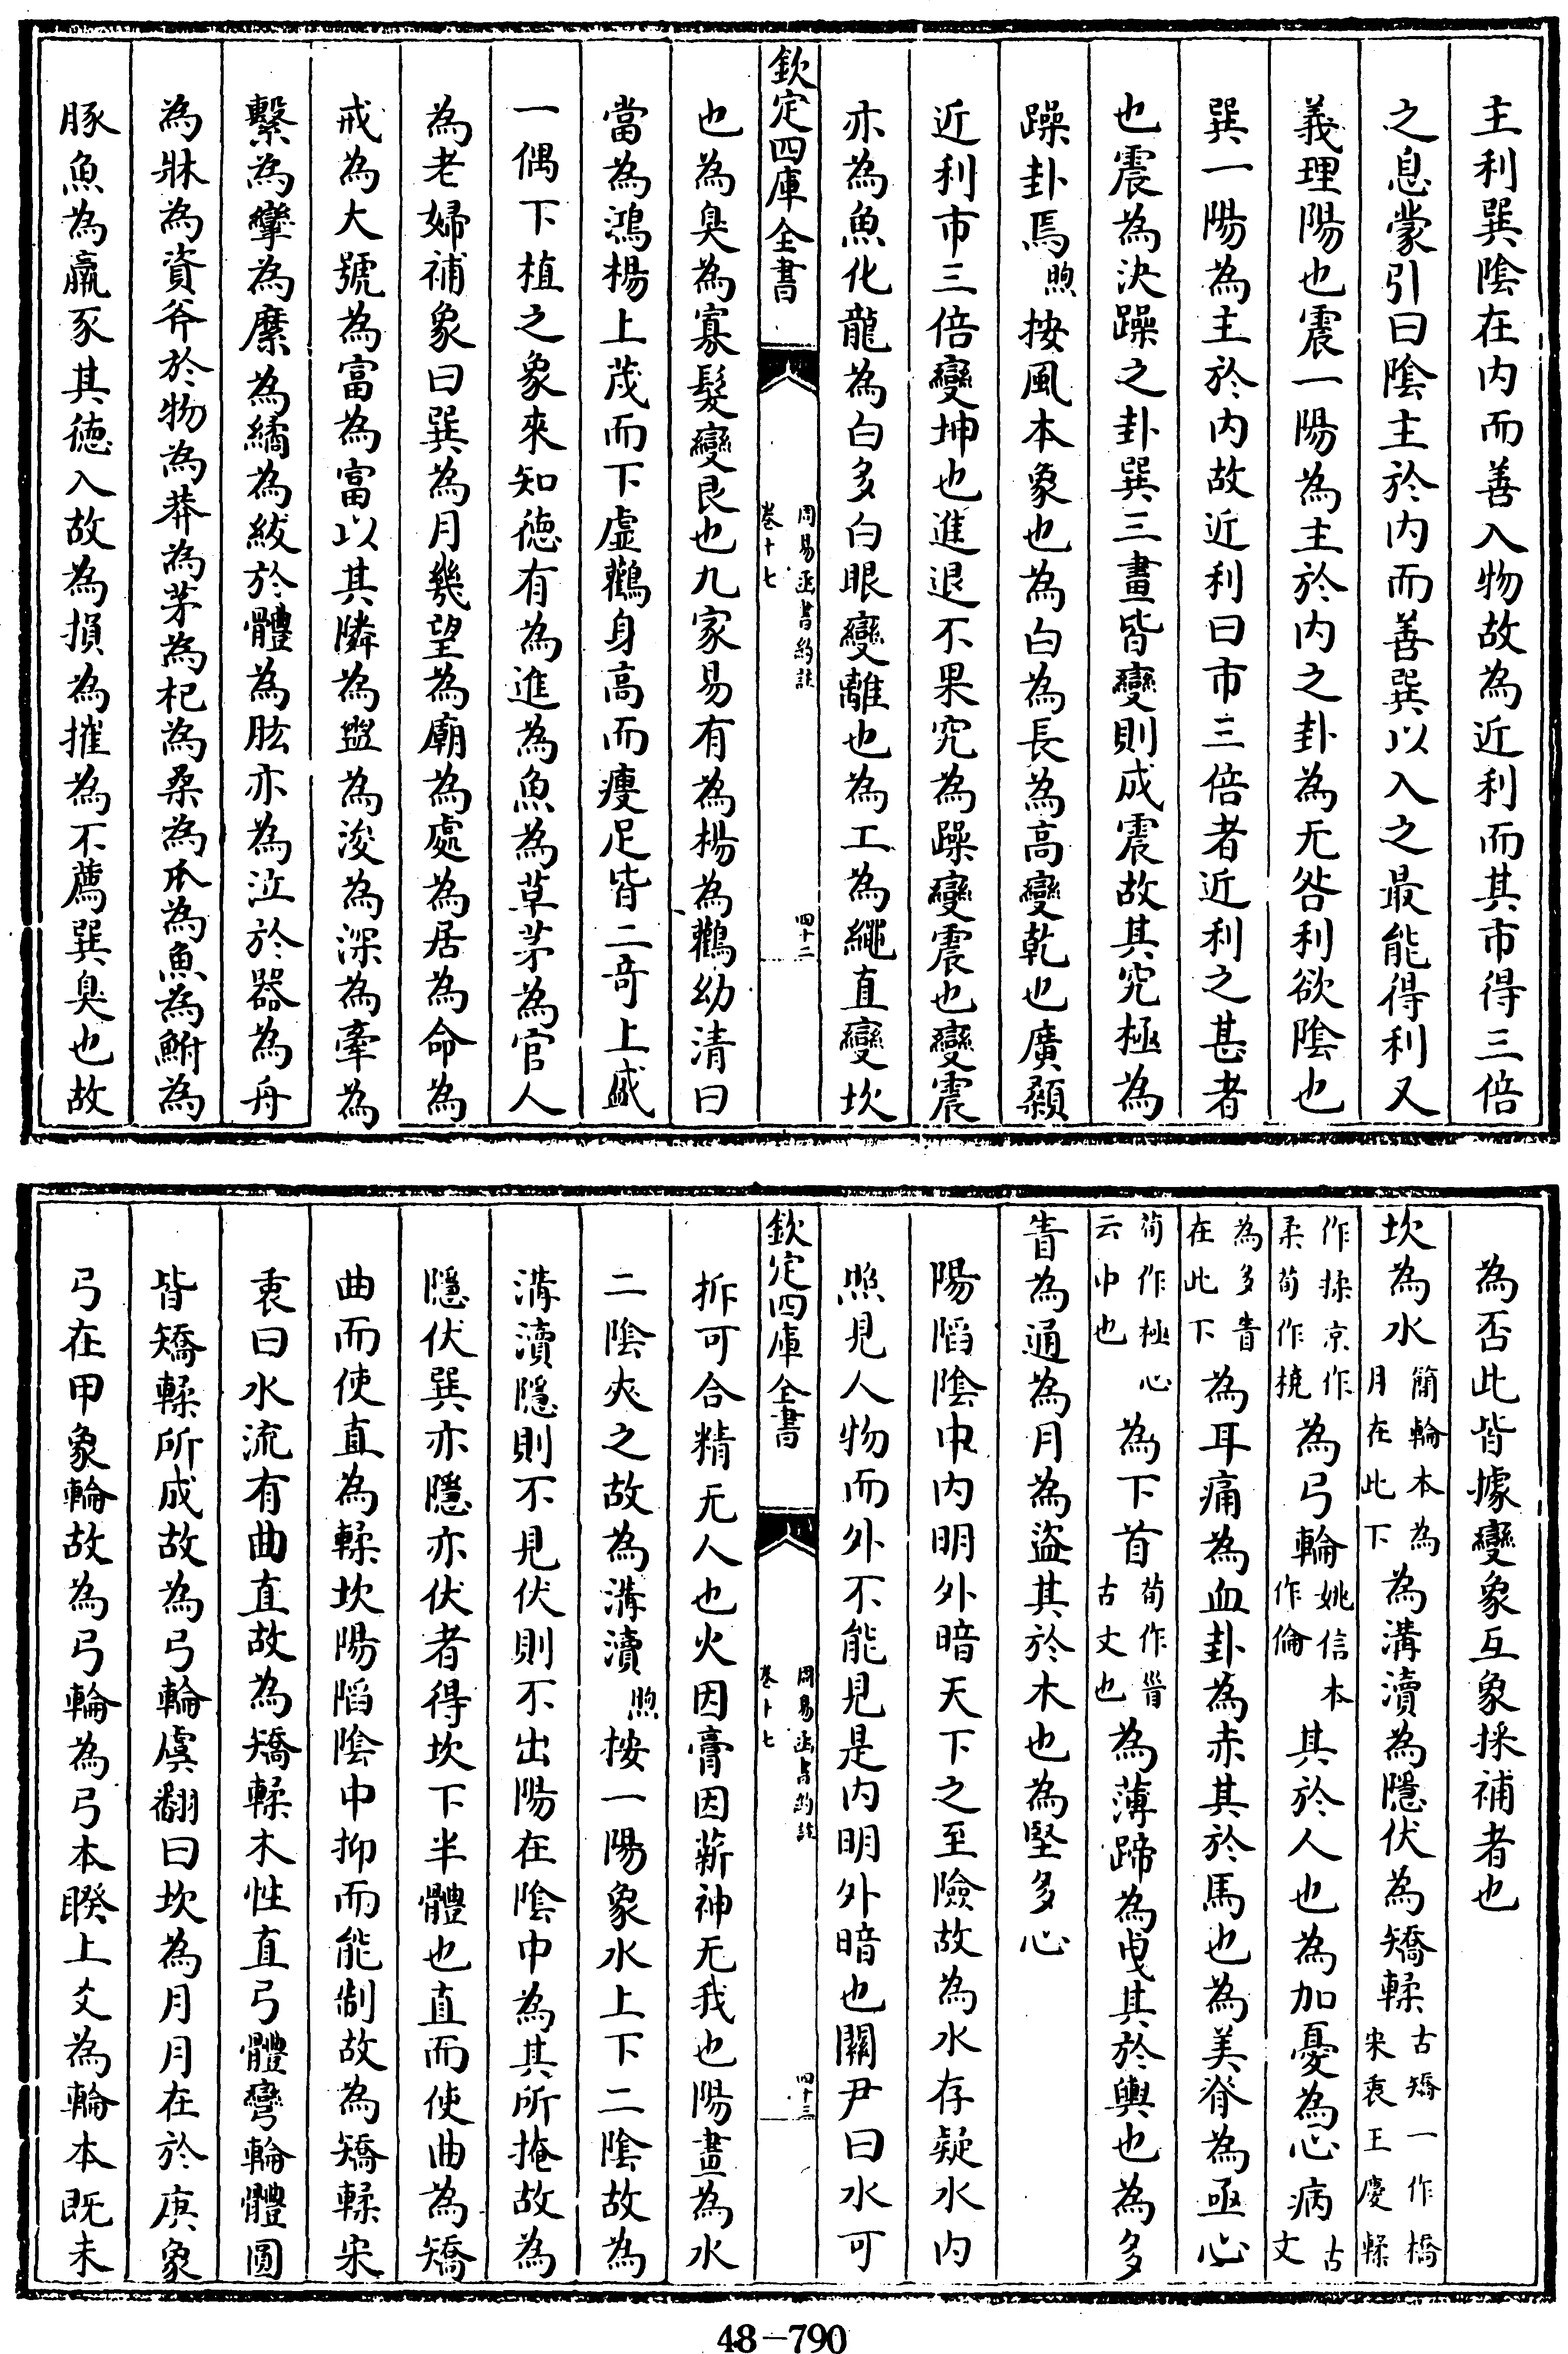 主利巽陰在内而善入物故為近利而其市得三倍
之息蒙引曰陰主於内而善巽以入之最能得利又
義理陽也震一陽為主於内之卦為无咎利欲陰也
巽一陽為主於内故近利曰市三倍者近利之甚者
也震為決躁之卦巽三畫皆變則成震故其究極為
躁卦焉煦按風本象也為白為長為高變乾也廣顙
近利市三倍變坤也進退不果究為躁變震也變震
亦為魚化龍為白多白眼變離也為工為繩直變坎
欽定四庫全書
周易函書約註
卷十七
四十二
也為臭為寡髮變艮也九家易有為楊為鸛幼清曰
當為鴻楊上茂而下虚鸛身高而瘦足皆二竒上盛
一偶下植之象來知德有為進為魚為草茅為官人
為老婦補象曰巽為月幾望為廟為處為居為命為
戒為大號為富為富以其隣為盥為浚為深為牽為
繫為攣為縻為繘為紱於體為肱亦為泣於器為舟
為牀為資斧於物為莽為茅為杞為桑為爪為魚為鮒為
豚魚為羸豕其德入故為損為摧為不薦巽臭也故
為否此皆據變象互象採補者也
坎為水簡輪本為
月在此下為溝瀆為隱伏為矯輮古矯一作橋
宋衷王廙輮
作揉京作
柔荀作橈為弓輪姚信本
作倫其於人也為加憂為心病古
文
為多眚
在此下為耳痛為血卦為赤其於馬也為美脊為亟心
荀作極心
云中也為下首荀作㫺
古文也為薄蹄為曳其於輿也為多
眚為通為月為盜其於木也為堅多心
陽陷陰中内明外暗天下之至險故為水存疑水内
照見人物而外不能見是内明外暗也關尹曰水可
欽定四庫全書
周易函書約註
卷十七
四十三
拆可合精无人也火因膏因薪神无我也陽畫為水
二陰夾之故為溝瀆煦按一陽象水上下二陰故為
溝瀆隱則不見伏則不出陽在陰中為其所掩故為
隱伏巽亦隱亦伏者得坎下半體也直而使曲為矯
曲而使直為輮坎陽陷陰中抑而能制故為矯輮宋
衷曰水流有曲直故為矯輮木性直弓體彎輪體圓
皆矯輮所成故為弓輪虞翻曰坎為月月在於庚象
弓在甲象輪故為弓輪為弓本睽上爻為輪本既未
48-790